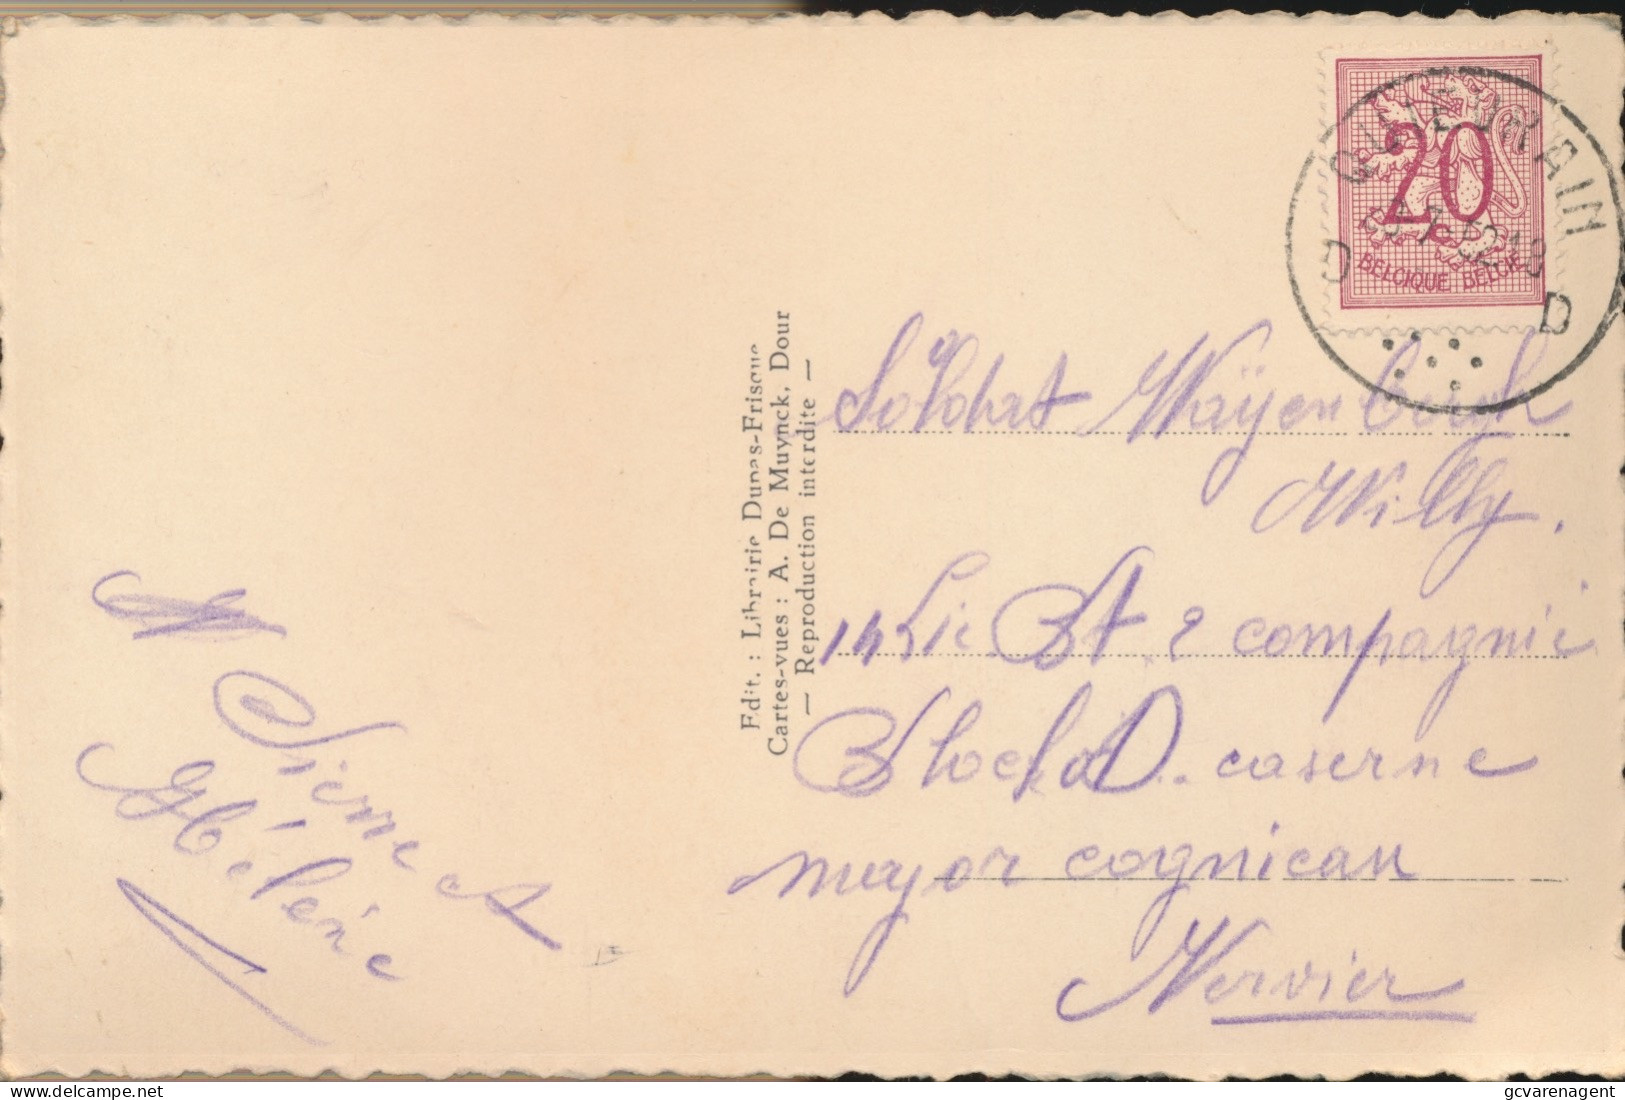 QUIEVRAIN
20
BELGIQUE BELGIE
D D
Edit. : Librairie Dunes-Frisque
Cartes-vues : A. De Muynck, Dour
— Reproduction interdite —
Soldat Waÿenbergh
Willy.
14 Lie Bt. 2 compagnie
Block D. caserne
major cognicau
Vervier
Pierre et
Hélène
https://www.delcampe.net
gcvarenagent